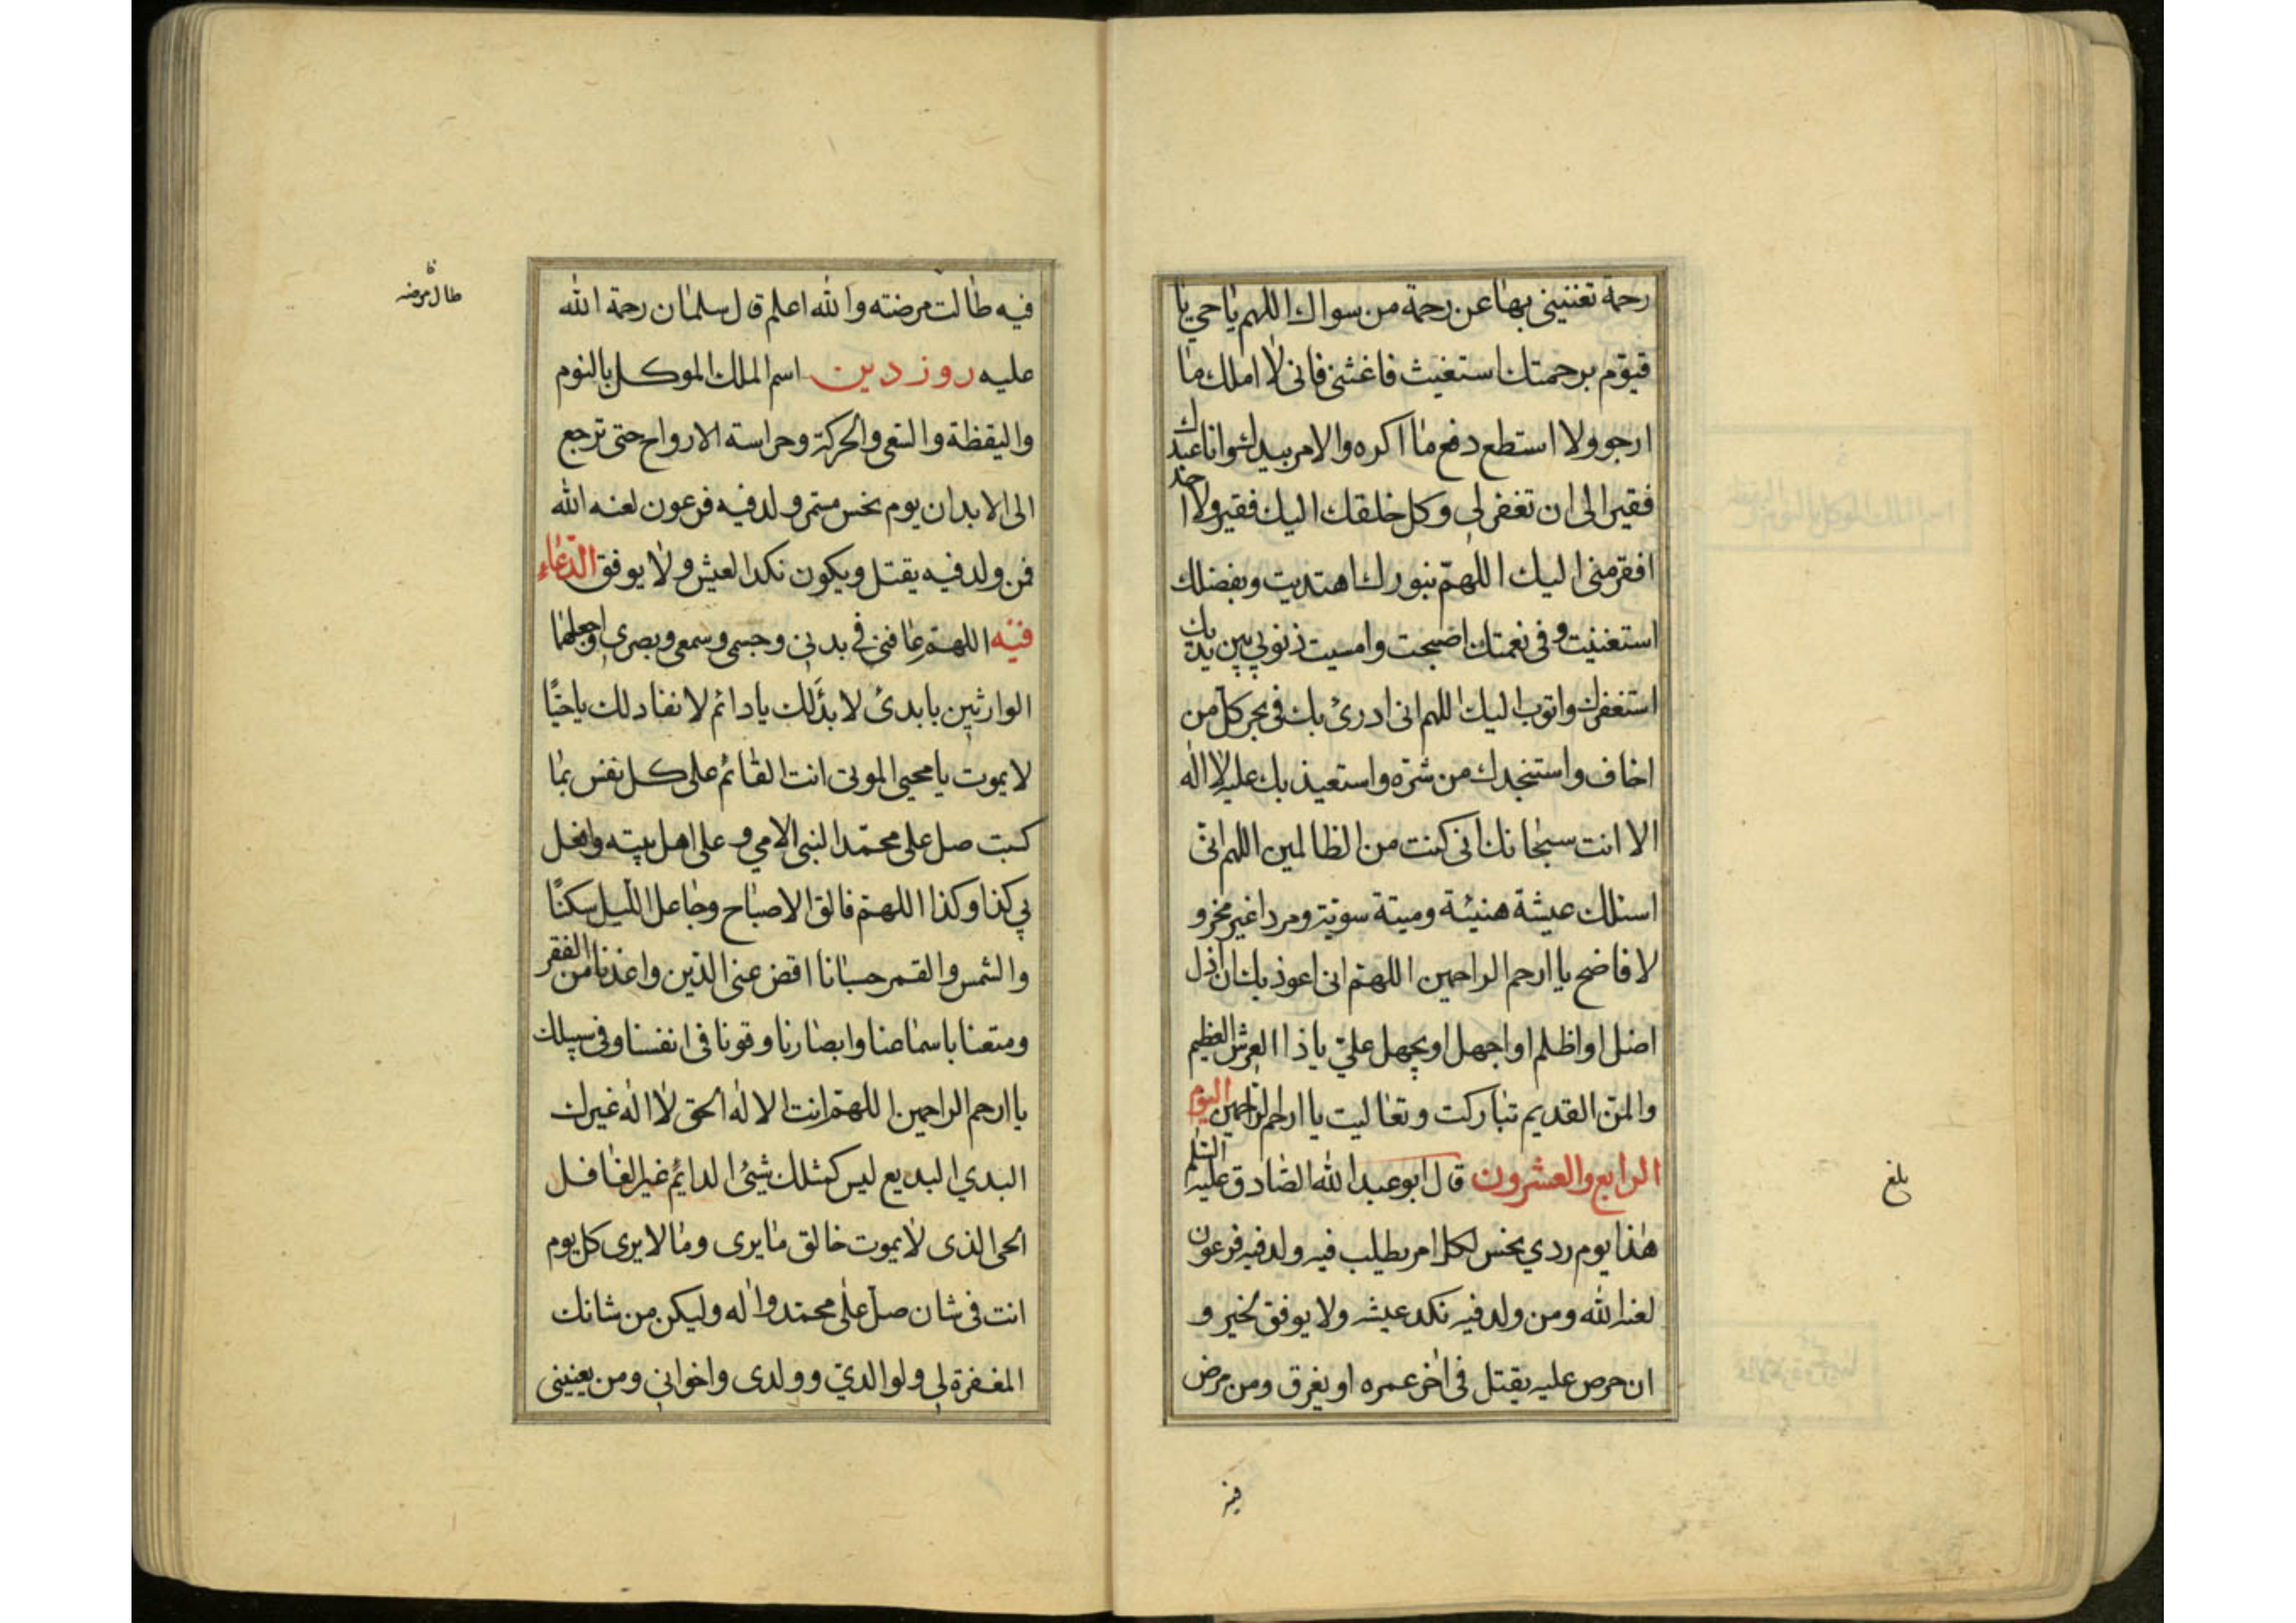 رحمة تغنيني بها عن رحمة من سواك اللهم يا حي يا
قيوم برحمتك استغيث فاغثني فاني لا املك ما
ارجو ولا استطع دفع ما اكره والامر بيدك وانا عبدك
فقير الى ان تغفر لي وكل خلقك اليك فقير ولا احد
افقر مني اليك اللهم بنورك اهتديت وبفضلك
استغنيت وفي نعمتك اصبحت وامسيت ذنوبي بين يديك
استغفرك واتوب اليك اللهم اني ادرئ بك في نحر كل من
اخاف واستنجدك من شره واستعيذ بك عليه لا اله
الا انت سبحانك اني كنت من الظالمين اللهم اني
اسئلك عيشة هنيئة وميتة سوية ومردا غير مخز و
لا فاضح يا ارحم الراحمين اللهم اني اعوذ بك ان اذل
اضل او اظلم او اجهل او يجهل علي يا ذا العرش العظيم
والمن القديم تباركت وتعاليت يا ارحم الراحمين اليوم
الرابع والعشرون قال ابو عبد الله الصادق عليه السلم
هذا يوم ردي نحس لكل امر يطلب فيه ولد فيه فرعون
لعنه الله ومن ولد فيه نكد عيشه ولا يوفق لخير و
ان حرص عليه يقتل في اخر عمره او يغرق ومن مرض
فيه
بلغ
فيه طالت مرضته والله اعلم قال سلمان رحمة الله
عليه روز دين اسم الملك الموكل بالنوم
واليقظة والسعي والحركة وحراسة الارواح حتى ترجع
الى الابدان يوم نحس مستمر ولد فيه فرعون لعنه الله
فمن ولد فيه يقتل ويكون نكد العيش ولا يوفق الدعاء
فيه اللهم عافني في بدني وجسمي وسمعي وبصري واجعلهما
الوارثين يا بدئ لا بدء لك يا دائم لا نفاد لك يا حيا
لا يموت يا محيي الموتى انت القائم على كل نفس بما
كسبت صل على محمد النبي الامي وعلى اهل بيته وافعل
بي كذا وكذا اللهم فالق الاصباح وجاعل الليل سكنا
والشمس والقمر حسبانا اقض عني الدين واعذنا من الفقر
ومتعنا باسماعنا وابصارنا وقونا في انفسنا وفي سبيلك
يا ارحم الراحمين اللهم انت الاله الحق لا اله غيرك
البدي البديع ليس كمثلك شيئ الدائم غير الغافل
الحي الذي لا يموت خالق ما يرى وما لا يرى كل يوم
انت في شان صل على محمد واله وليكن من شانك
المغفرة لي ولوالدي وولدي واخواني ومن يعنيني
طال مرضه